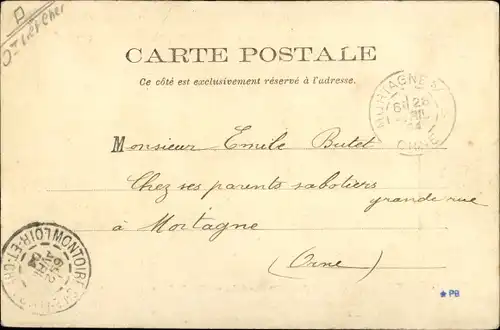 D
CARTE POSTALE
Ce côté est exclusivement réservé à l'adresse.
MORTAGNE
ORNE
Monsieur Emile Butet
Chez ses parents sabotiers
grande rue
à Mortagne
(Orne)
MONTOIRE
LOIR-ET-CHER
*PB